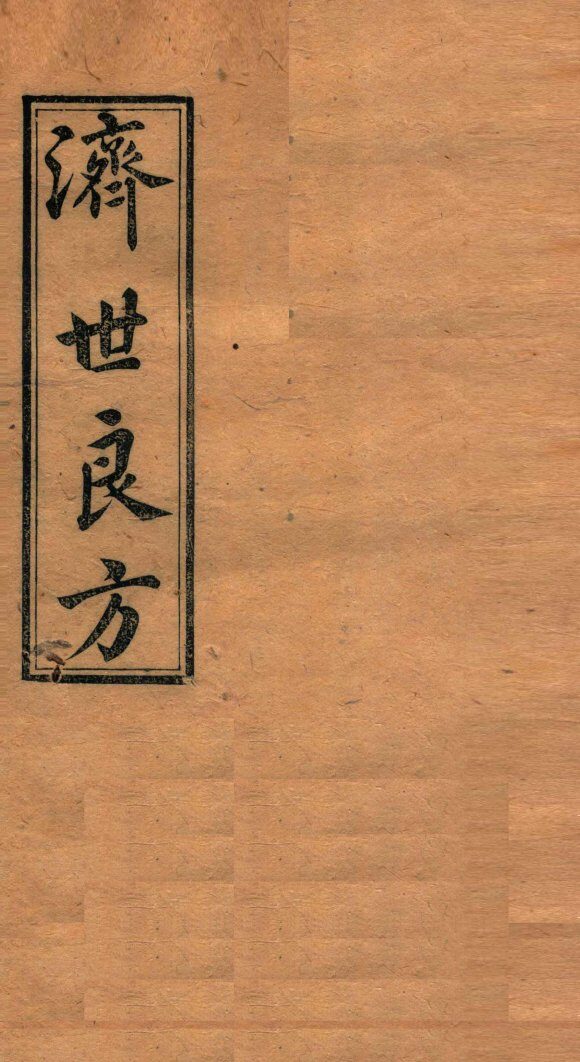 濟世良方